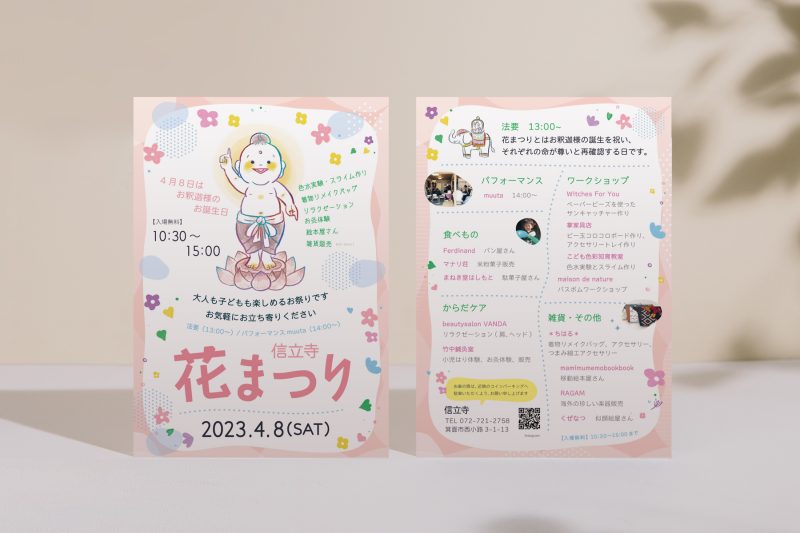 4月8日は
お釈迦様の
お誕生日
【入場無料】
10:30〜
15:00
色水実験・スライム作り
着物リメイクバッグ
リラクゼーション
お灸体験
絵本屋さん
雑貨販売
大人も子どもも楽しめるお祭りです
お気軽にお立ち寄りください
法要（13:00〜）/ パフォーマンス muuta（14:00〜）
信立寺
花まつり
2023.4.8(SAT)
法要 13:00〜
花まつりとはお釈迦様の誕生を祝い、
それぞれの命が尊いと再確認する日です。
パフォーマンス
muuta 14:00〜
食べもの
Ferdinand パン屋さん
マナリ荘 米粉菓子販売
まねき堂はしもと 駄菓子屋さん
からだケア
beautysalon VANDA
リラクゼーション（肩、ヘッド）
竹中鍼灸室
小児はり体験、お灸体験、販売
お車の際は、近隣のコインパーキングへ
駐車いただくよう、お願い申し上げます
信立寺
TEL 072-721-2758
箕面市西小路 3-1-13
Instagram
ワークショップ
Witches For You
ペーパービーズを使った
サンキャッチャー作り
掌家具店
ビー玉コロコロボード作り、
アクセサリートレイ作り
こども色彩知育教室
色水実験とスライム作り
maison de nature
バスボムワークショップ
雑貨・その他
＊ちはる＊
着物リメイクバッグ、アクセサリー、
つまみ細工アクセサリー
mamimumemobookbook
移動絵本屋さん
RAGAM
海外の珍しい楽器販売
くぜなつ 似顔絵屋さん
【入場無料】10:30〜15:00 まで